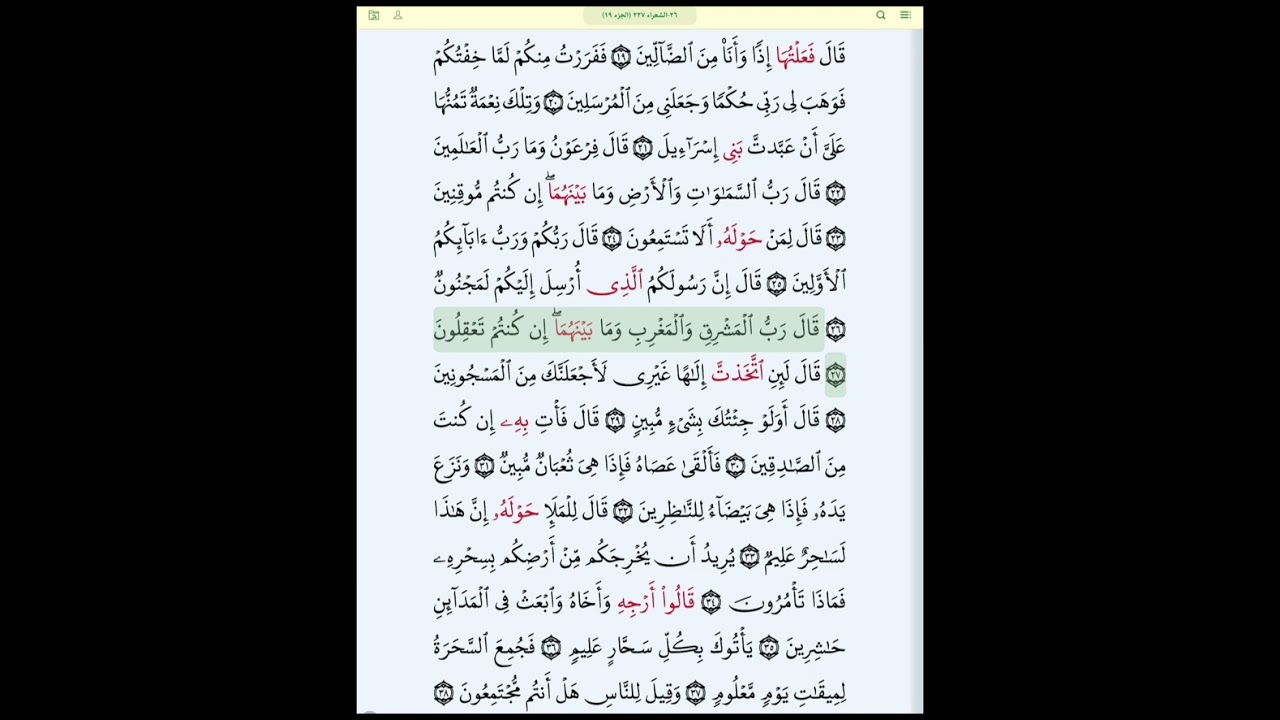 ٢٦-الشعراء ٢٢٧ (الجزء ١٩)
قَالَ فَعَلْتُهَا إِذًا وَأَنَا۠ مِنَ ٱلضَّآلِّينَ ١٩ فَفَرَرْتُ مِنكُمْ لَمَّا خِفْتُكُمْ
فَوَهَبَ لِى رَبِّى حُكْمًا وَجَعَلَنِى مِنَ ٱلْمُرْسَلِينَ ٢٠ وَتِلْكَ نِعْمَةٌ تَمُنُّهَا
عَلَىَّ أَنْ عَبَّدتَّ بَنِى إِسْرَٰٓءِيلَ ٢١ قَالَ فِرْعَوْنُ وَمَا رَبُّ ٱلْعَٰلَمِينَ
٢٢ قَالَ رَبُّ ٱلسَّمَٰوَٰتِ وَٱلْأَرْضِ وَمَا بَيْنَهُمَآ ۖ إِن كُنتُم مُّوقِنِينَ
٢٣ قَالَ لِمَنْ حَوْلَهُۥ أَلَا تَسْتَمِعُونَ ٢٤ قَالَ رَبُّكُمْ وَرَبُّ ءَابَآئِكُمُ
ٱلْأَوَّلِينَ ٢٥ قَالَ إِنَّ رَسُولَكُمُ ٱلَّذِى أُرْسِلَ إِلَيْكُمْ لَمَجْنُونٌ
٢٦ قَالَ رَبُّ ٱلْمَشْرِقِ وَٱلْمَغْرِبِ وَمَا بَيْنَهُمَآ ۖ إِن كُنتُمْ تَعْقِلُونَ
٢٧ قَالَ لَئِنِ ٱتَّخَذتَّ إِلَٰهًا غَيْرِى لَأَجْعَلَنَّكَ مِنَ ٱلْمَسْجُونِينَ
٢٨ قَالَ أَوَلَوْ جِئْتُكَ بِشَىْءٍ مُّبِينٍ ٢٩ قَالَ فَأْتِ بِهِۦ إِن كُنتَ
مِنَ ٱلصَّٰدِقِينَ ٣٠ فَأَلْقَىٰ عَصَاهُ فَإِذَا هِىَ ثُعْبَانٌ مُّبِينٌ ٣١ وَنَزَعَ
يَدَهُۥ فَإِذَا هِىَ بَيْضَآءُ لِلنَّٰظِرِينَ ٣٢ قَالَ لِلْمَلَإِ حَوْلَهُۥ إِنَّ هَٰذَا
لَسَٰحِرٌ عَلِيمٌ ٣٣ يُرِيدُ أَن يُخْرِجَكُم مِّنْ أَرْضِكُم بِسِحْرِهِۦ
فَمَاذَا تَأْمُرُونَ ٣٤ قَالُوٓا۟ أَرْجِهْ وَأَخَاهُ وَٱبْعَثْ فِى ٱلْمَدَآئِنِ
حَٰشِرِينَ ٣٥ يَأْتُوكَ بِكُلِّ سَحَّارٍ عَلِيمٍ ٣٦ فَجُمِعَ ٱلسَّحَرَةُ
لِمِيقَٰتِ يَوْمٍ مَّعْلُومٍ ٣٧ وَقِيلَ لِلنَّاسِ هَلْ أَنتُم مُّجْتَمِعُونَ ٣٨